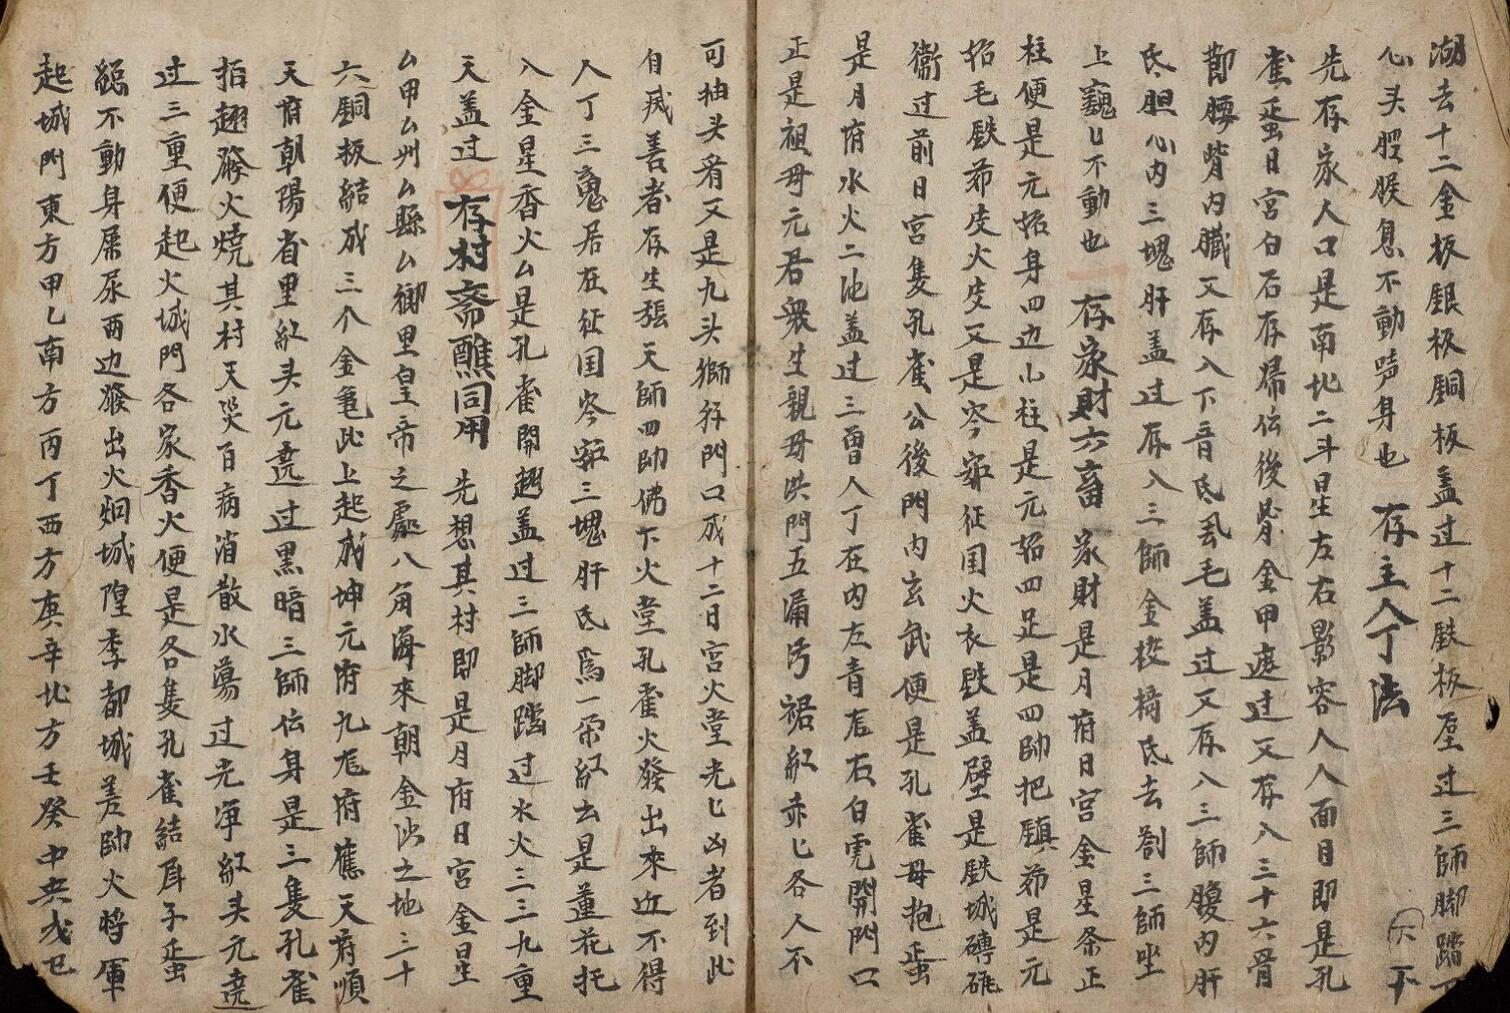 湖去十二金板銀板銅板盖过十二鉄板压过三師脚踏
心头腔喉息不動声身也 存主人丁法
先存家人口是南北二斗星左右影容人人面目即是孔
雀蛋日宮白石存歸伝後背金甲遮过又存入三十六骨
節腰背内臓又存入下音氐毛盖过又存入三師腹内肝
氐胆心内三塊肝盖过存入三師金校椅氐去剳三師坐
上巍匕不動也 存家財六畜 家財是月府日宮金星条正
柱便是元招身四边小柱是元招四足是四帥把鎮茆是元
招毛鉄茆皮火皮又是岑窂征国火衣鉄盖壁是鉄城磚砒
衝过前日宮隻孔雀公後門内玄武便是孔雀母抱蛋
是月府水火二池盖过三曾人丁在内左青右白虎開門口
正是祖母元君衆生親母洪門五漏汚裙紅赤匕各人不
可抽头看又是九头獅存門口成十二日宮火堂光匕凶者到此
自滅善者存生張天師四帥佛下火堂孔雀火發出來近不得
人丁三魂居在征国岑窂三塊肝氐為一朶紅去是蓮花托
入金星香火厶是孔雀開翅盖过三師脚踏过水火三三九重
天盖过 存村斋醮同用 先想其村即是月府日宮金星
厶甲厶州厶縣厶鄉里皇帝之處八角海來朝金沙之地三十
六銅板結成三个金龟此上起成坤元府九厄府應天府順
天府朝陽省里紅头元遶过黑暗三師伝身是三隻孔雀
拍翅發火燒其村天災百病消散水蕩过光淨紅头元遶
过三重便起火城門各家香火便是各隻孔雀結眉子蛋
總不動身屎尿両边發出火烟城隍李都城差帥火將軍
起城門東方甲乙南方丙丁西方庚辛北方壬癸中央戊己